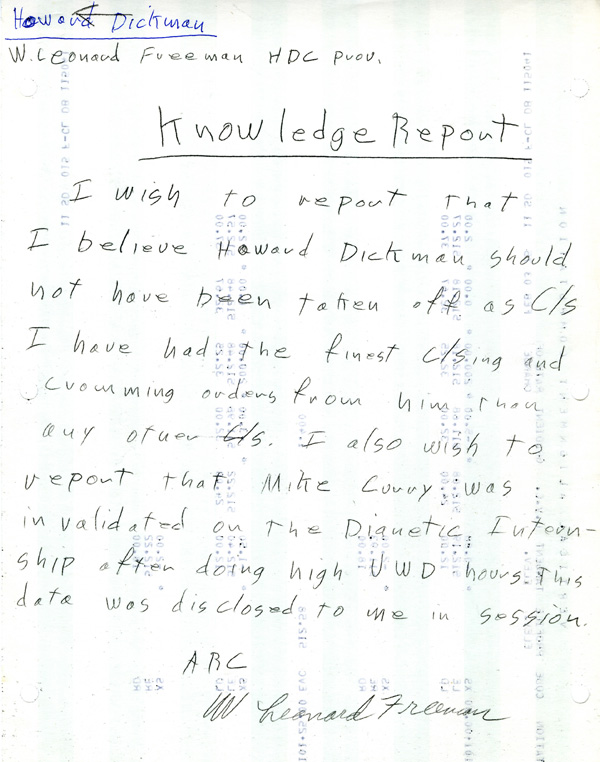 Howard Dickman
W. Leonard Freeman HDC Prov.
Knowledge Report
I wish to report that
I believe Howard Dickman should
not have been taken off as C/s
I have had the finest C/sing and
cramming orders from him than
any other C/s. I also wish to
report that Mike Curry was
invalidated on the Dianetic Intern-
ship after doing high UWD hours this
data was disclosed to me in session.
ARC
W Leonard Freeman